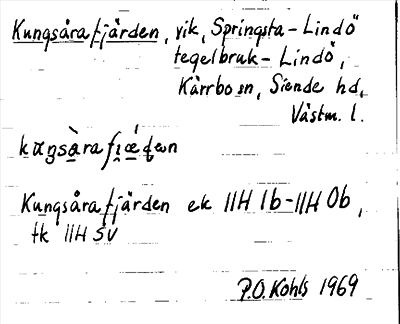 Kungsårafjärden, vik, Springsta-Lindö
tegelbruk-Lindö,
Kärrbo sn, Siende hd,
Västm. l.
Kungsårafjärden ek 11H 1b-11H 0b,
tk 11H SV
P.O. Kohls 1969